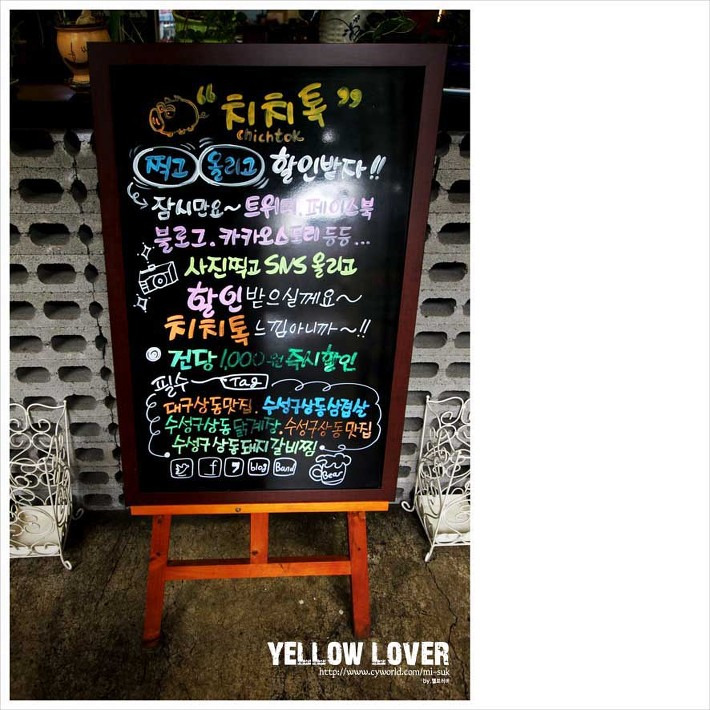 “치치톡”
chichtok
찍고 올리고 할인받자!!
잠시만요~ 트위터. 페이스북
블로그. 카카오스토리 등등...
사진찍고 SNS 올리고
할인 받으실께요~
치치톡 느낌아니까~!!
건당 1,000원 즉시할인
필수 Tag
대구상동맛집. 수성구상동삼겹살
수성구상동 닭계장. 수성구상동 맛집
수성구상동돼지갈비찜
f blog Band Beer
YELLOW LOVER
http://www.cyworld.com/mi-suk